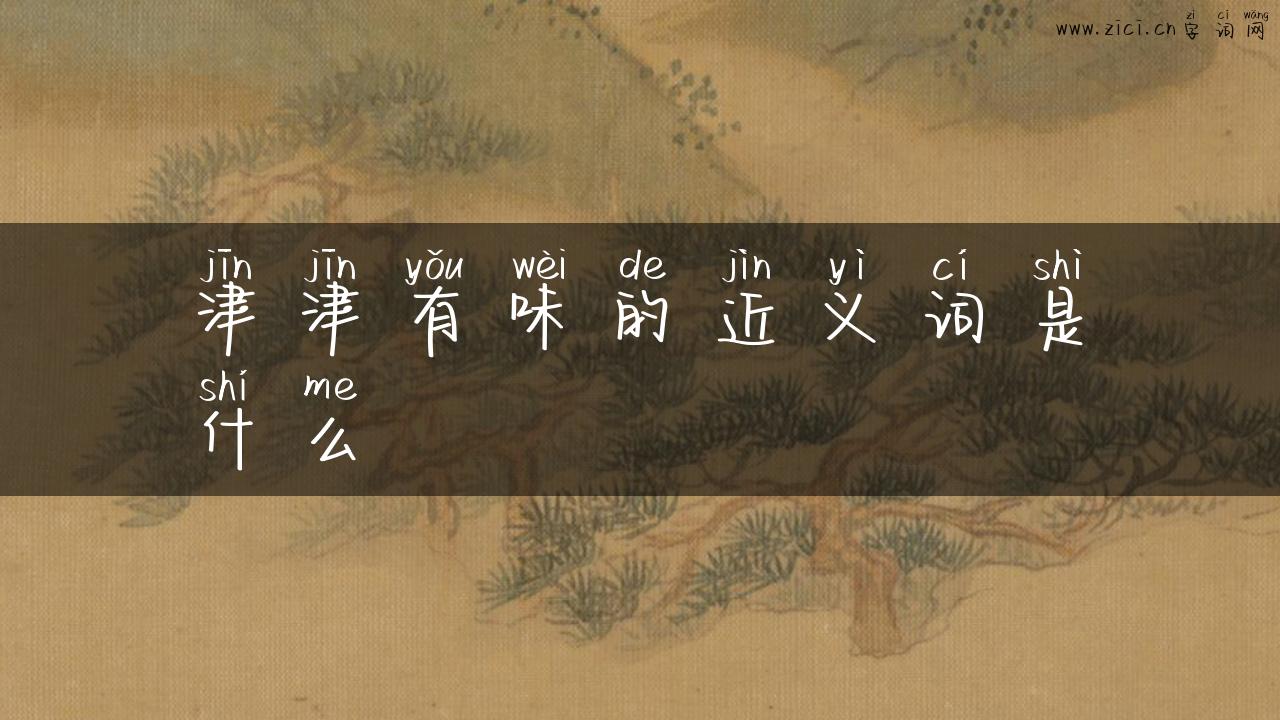 zì cí wǎng
www.zici.cn 字 词 网
jīn jīn yǒu wèi de jìn yì cí shì
津 津 有 味 的 近 义 词 是
shí me
什 么